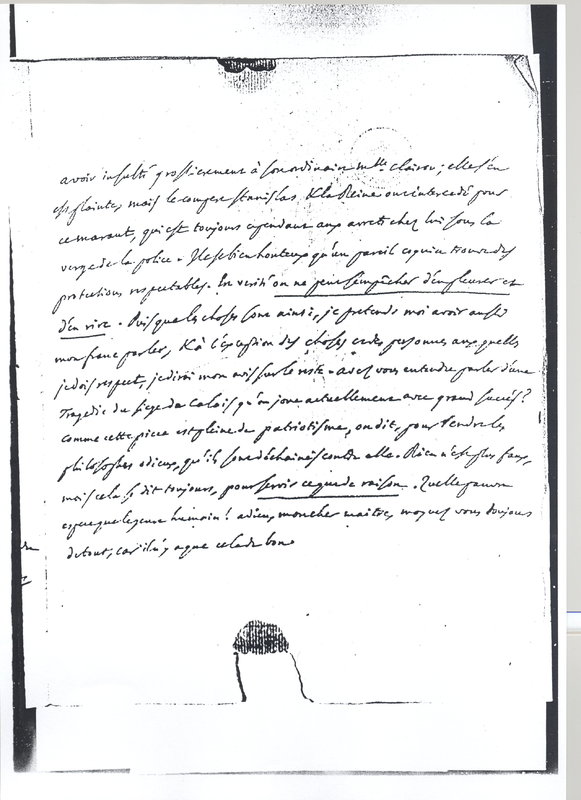 avoir insulté grossierement à son ordinaire Mlle Clairon; elle s'en
est plainte, mais le compere Stanislas & la Reine ont intercedé pour
ce maraut, qui est toujours cependant aux arrets chez lui sous la
verge de la police. Il est bien honteux qu'un pareil coquin trouve des
protections respectables. En verité on ne peut s'empêcher d'en pleurer et
d'en rire. Puisque les choses sont ainsi, je pretends moi avoir aussi
mon franc parler, & à l'exception des choses et des personnes auxquelles
je dois respect, je dirai mon avis sur le reste. avez vous entendu parler d'une
Tragedie du siege de Calais qu'on joue actuellement avec grand succès?
comme cette piece est pleine de patriotisme, on dit, pour rendre les
philosophes odieux, qu'ils sont déchainés contre elle. Rien n'est plus faux,
mais cela se dit toujours, pour servir ce que de raison. Quelle pauvre
espece que le genre humain! adieu, mon cher maitre, moquez vous toujours
de tout, car il n'y a que cela de bon.